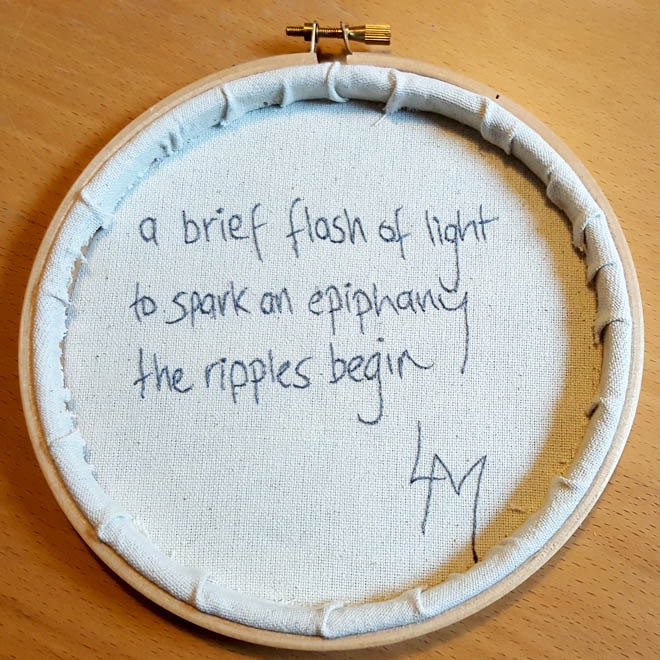 a brief flash of light
to spark an epiphany
the ripples begin
LM